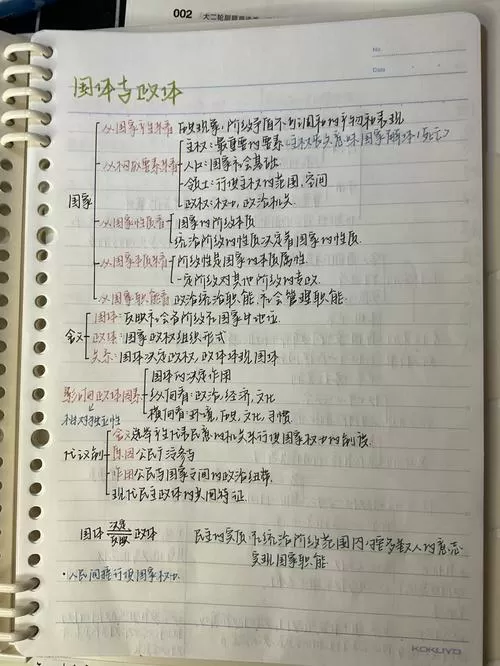 002
No.
Date
国体与政体
从国家产生来看 历史现象,阶级矛盾不可调和的产物和表现
主权:最重要的要素
从构成要素来看 人口:国家社会基础
领土:行使主权的范围、空间
政权:权力,政治机关
国家
从国家性质看 国家的阶级本质
统治阶级的性质决定着国家的性质
从国家本质来看 阶级性是国家的本质属性
一定阶级对其他阶级的专政
从国家职能看 政治统治职能 社会管理职能
国体:反映社会各阶级在国家中地位
含义 政体:国家政权组织形式
关系:国体决定政体,政体体现国体
国体的决定作用
影响政体因素 纵向看:政治,经济,文化
相对独立性 横向看:环境,历史,文化,习惯
含义 选举产生代表民意的机关来行使国家权力的制度
代议制 原因 公民广泛参与
作用 公民与国家之间的政治纽带
现代民主政体的共同特征
国体 决定 反映 政体
民主的实质 在统治阶级范围内,按多数人的意志
实现国家职能
·人民间接行使国家权力
KOKUYO